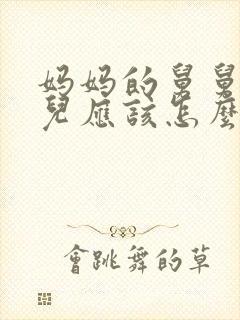 妈妈的舅舅
兒應該怎麼
會跳舞的草